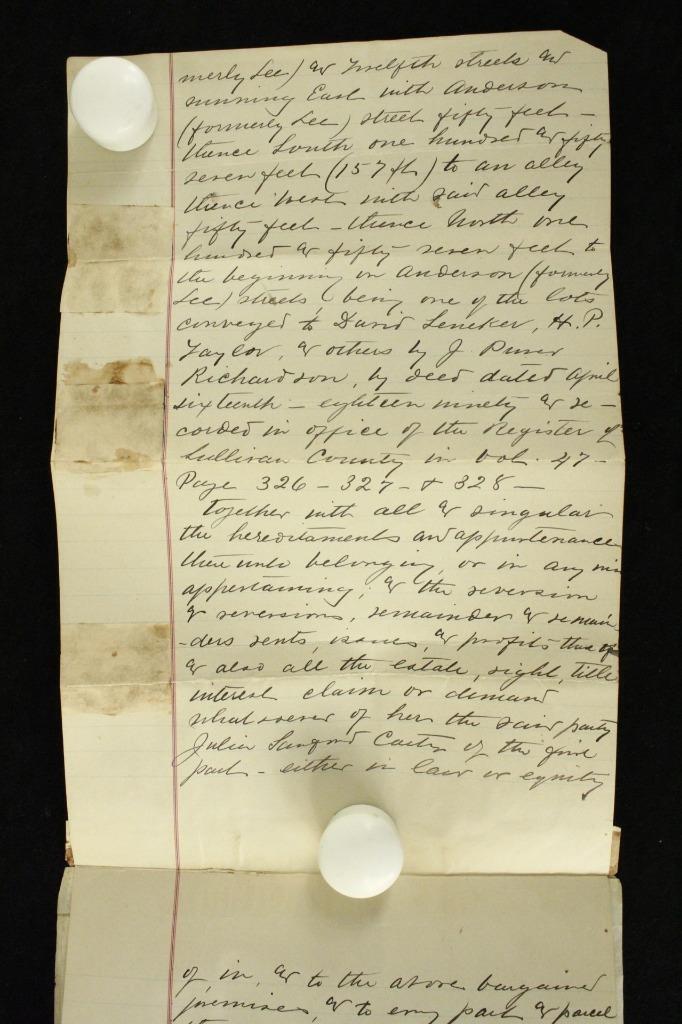 merly Lee) & Twelfth streets &
running East with Anderson
(formerly Lee) street fifty feet —
thence South one hundred & fifty
seven feet (157 ft) to an alley
thence West with said alley
fifty feet — thence North one
hundred & fifty seven feet to
the beginning on Anderson (formerly
Lee) streets (being one of the lots
conveyed to David Leneker, H. P.
Taylor, & others by J.
Richardson, by deed dated April
sixteenth — eighteen ninety & re–
corded in office of the Register of
Sullivan County in Vol. 47 —
Page 326 – 327 – & 328 —
together with all & singular
the hereditaments and appurtenance
thereunto belonging, or in any
appertaining, & the reversion
& reversions, remainder & remain
-ders rents, issues, & profits thereof
& also all the estate, right, title
interest claim or demand
whatsoever of her the said party
Julia Sanford Carter of the first
part — either in law or equity
of, in, & to the above bargained
premises, & to every part & parcel